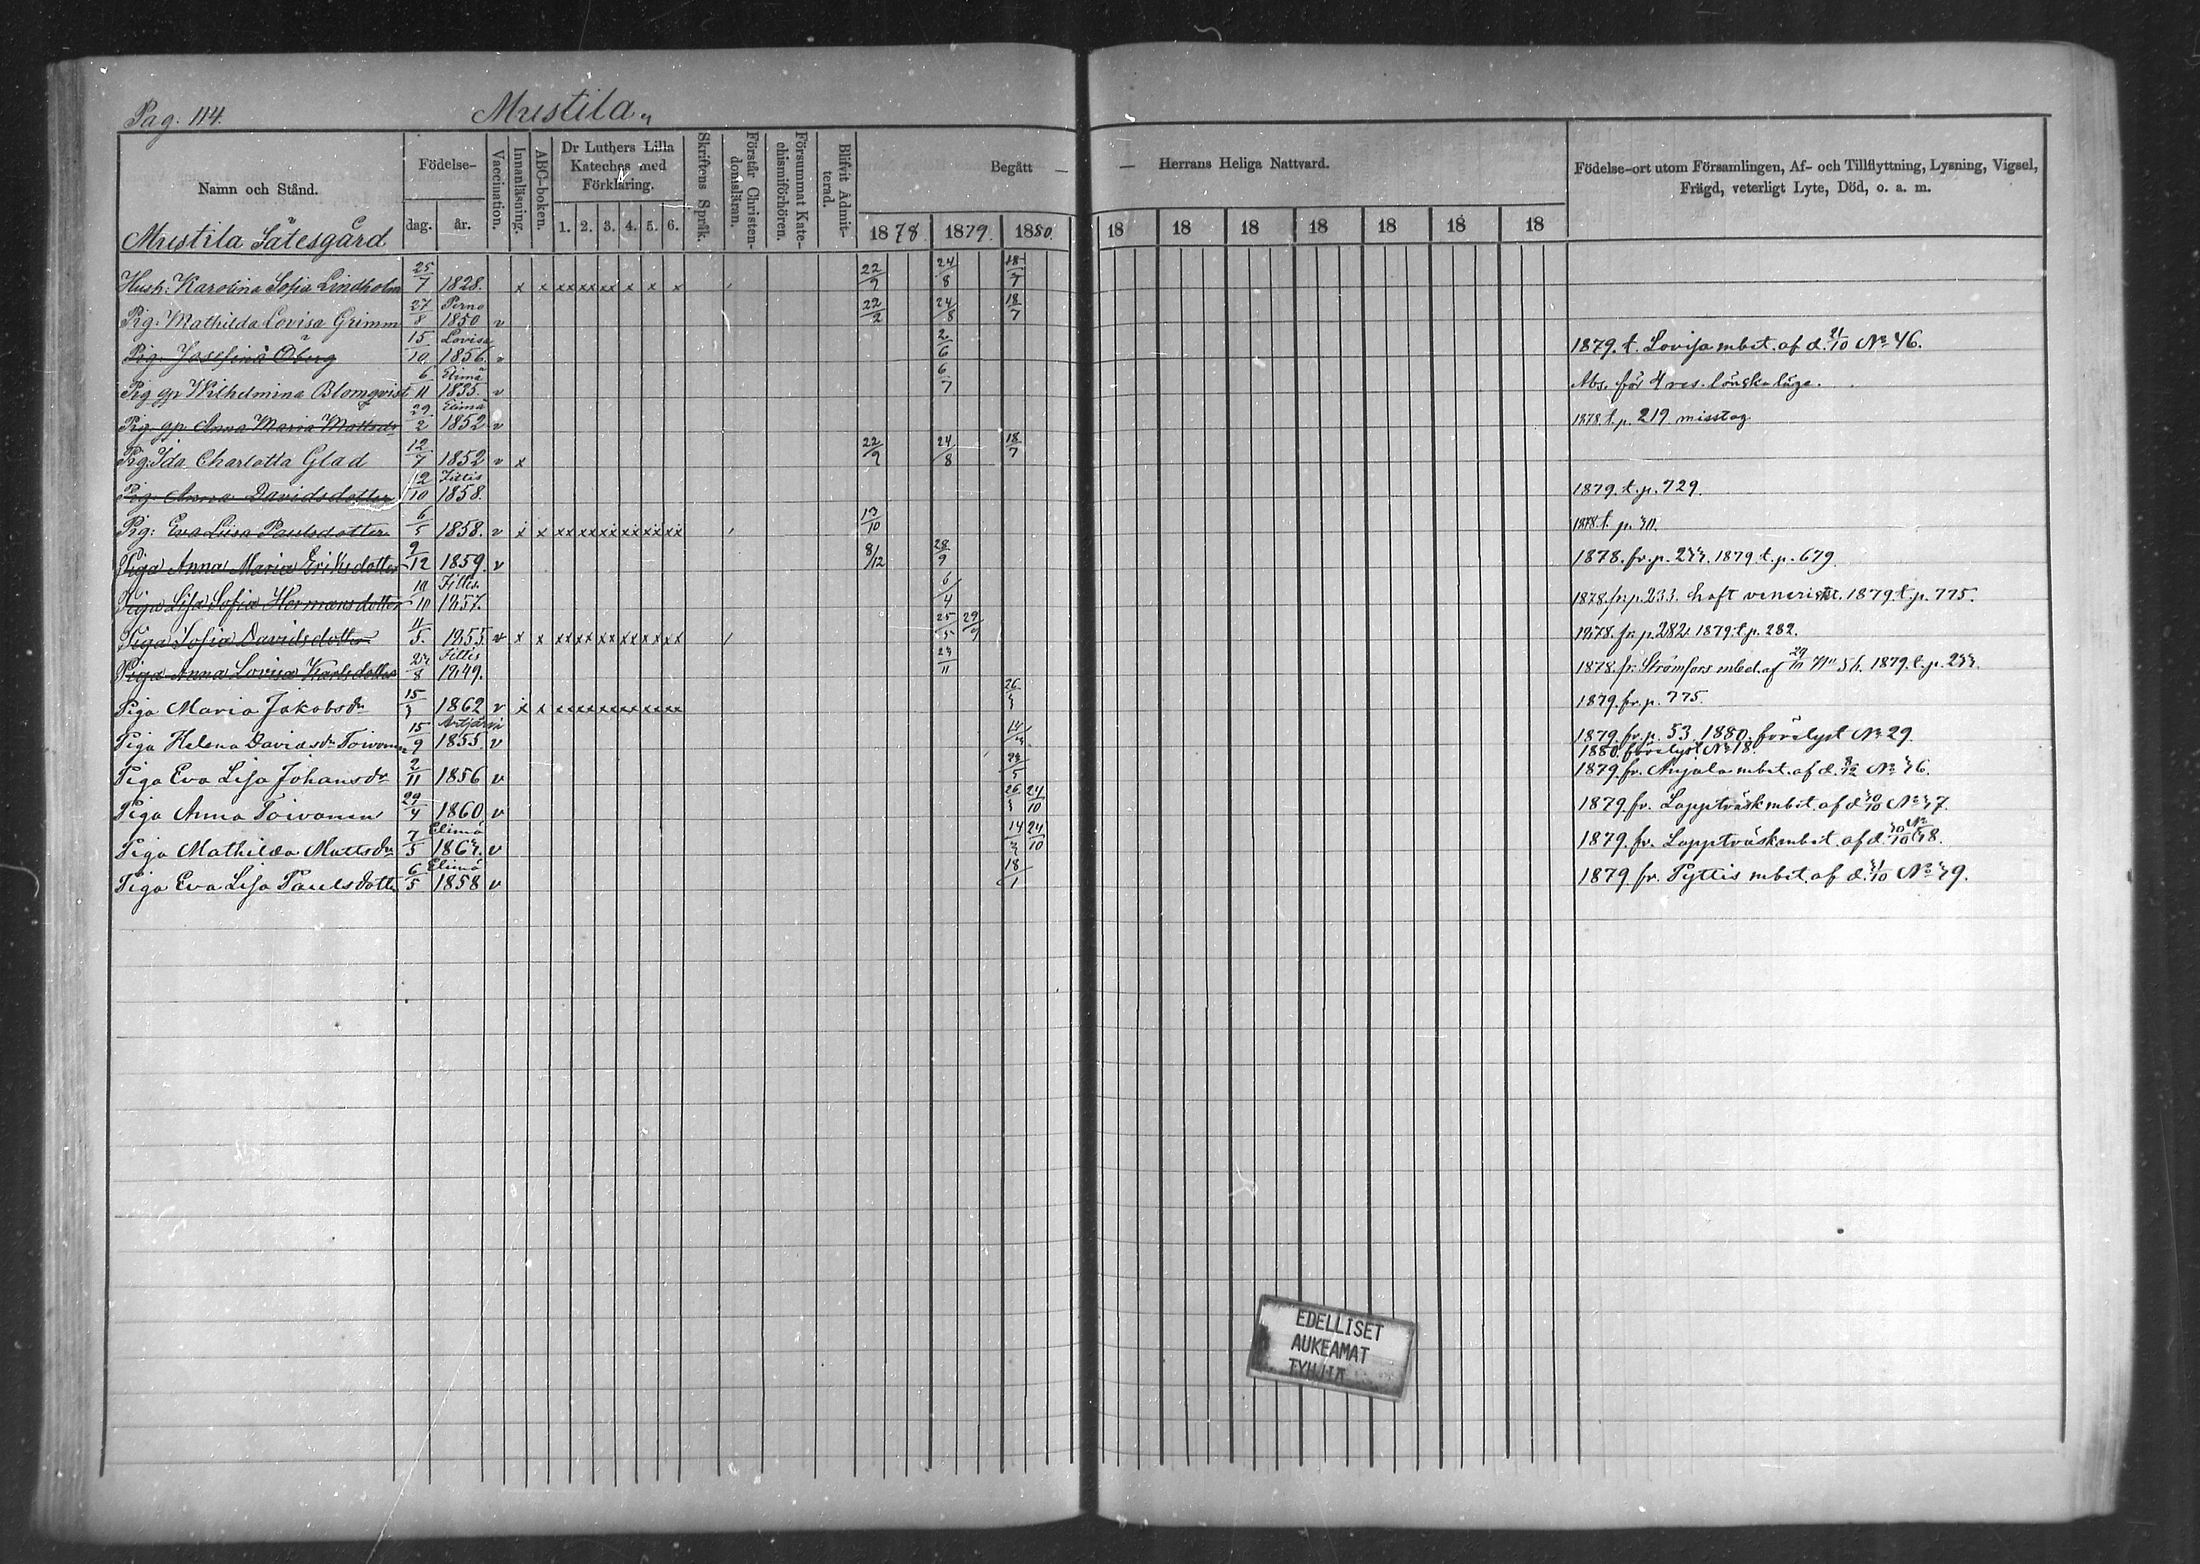 Pag. 114.
Mustila
Namn och Stånd.
Födelse-
dag.
år.
Vaccination.
Innanläsning.
ABC-boken.
Dr Luthers Lilla
Kateches med
Förklaring.
1. 2. 3. 4. 5. 6.
Skriftens Språk.
Förstår Christen-
domsläran.
Försummat Kate-
chismiförhören.
Blifvit Admit-
terad.
Begått — — Herrans Heliga Nattvard.
1878. 1879. 1880. 18 18 18 18 18 18 18
Födelse-ort utom Församlingen, Af- och Tillflyttning, Lysning, Vigsel,
Frägd, veterligt Lyte, Död, o. a. m.
Mustila Sätesgård
Hush: Karolina Sofia Lindholm 25/7 1828. x x xx xx xx x x x 22/9 24/8 18/7
Pig: Mathilda Lovisa Grimm 27/8 Perno 1850 v 22/9 24/8 18/7
Pig. Josefina Öberg 15/10 Lovisa 1856. v 2/6 1879. t. Lovisa mbet. af d. 21/10 No 46.
Pig gp Wilhelmina Blomqvist 6/11 Elimä 1835. v 6/7 Abs. för 4 res. lönskaläge.
Pig. gp Anna Maria Mattsdr 29/2 Elimä 1852 v 1878. t. p. 219 misstag
Pig: Ida Charlotta Glad 12/7 1852 v x 22/9 24/8 18/7
Pig. Anna Davidsdotter 2/10 Pittis 1858. 1879. t. p. 729.
Pig: Eva Lisa Paulsdotter 6/5 1858. v x x xx xx xx xx xx xx 13/10 1878. t. p. 30.
Piga Anna Maria Eriksdotter 9/12 1859. v 8/12 28/9 1878. fr. p. 233. 1879 t. p. 679.
Piga Lisa Sofia Hermansdotter 10/10 Pittis. 1857. 6/4 1878. fr. p. 233. haft venerisk. 1879. t. p. 775.
Piga Sofia Davidsdotter 4/5. 1855 v x x xx xx xx xx xx xx 25/5 29/9 1878. fr. p. 282. 1879. t. p. 282.
Piga Anna Lovisa Karlsdotter 23/8 Pittis 1849. 23/11 1878. fr. Strömfors mbet. af 29/10 No 56. 1879. t. p. 233.
Piga Maria Jakobsdr 15/3 1862 v x x xx xx xx xx xx xx 26/3 1879. fr. p. 775.
Piga Helena Davidsdr Toivonen 15/9 Artjärvi 1855. v 14/3 1879. fr. p. 53. 1880. förelyst No 29.
Piga Eva Lisa Johansdr 2/11 1856 v 23/5 1880. förelyst No 18. 1879. fr. Anjala mbet. af d. 8/12 No 36.
Piga Anna Toivonen 29/4 1860 v 26/3 24/10 1879. fr. Lappträsk mbet. af d. 30/10 No 37.
Piga Mathilda Mattsdr 7/5 Elimä 1863. v 14/3 24/10 1879. fr. Lappträsk mbet. af d. 30/10 No 38.
Piga Eva Lisa Paulsdotter 6/5 Elimä 1858 v 18/1 1879 fr. Pyttis mbet. af d. 31/10 No 39.
EDELLISET
AUKEAMAT
TYHJIÄ